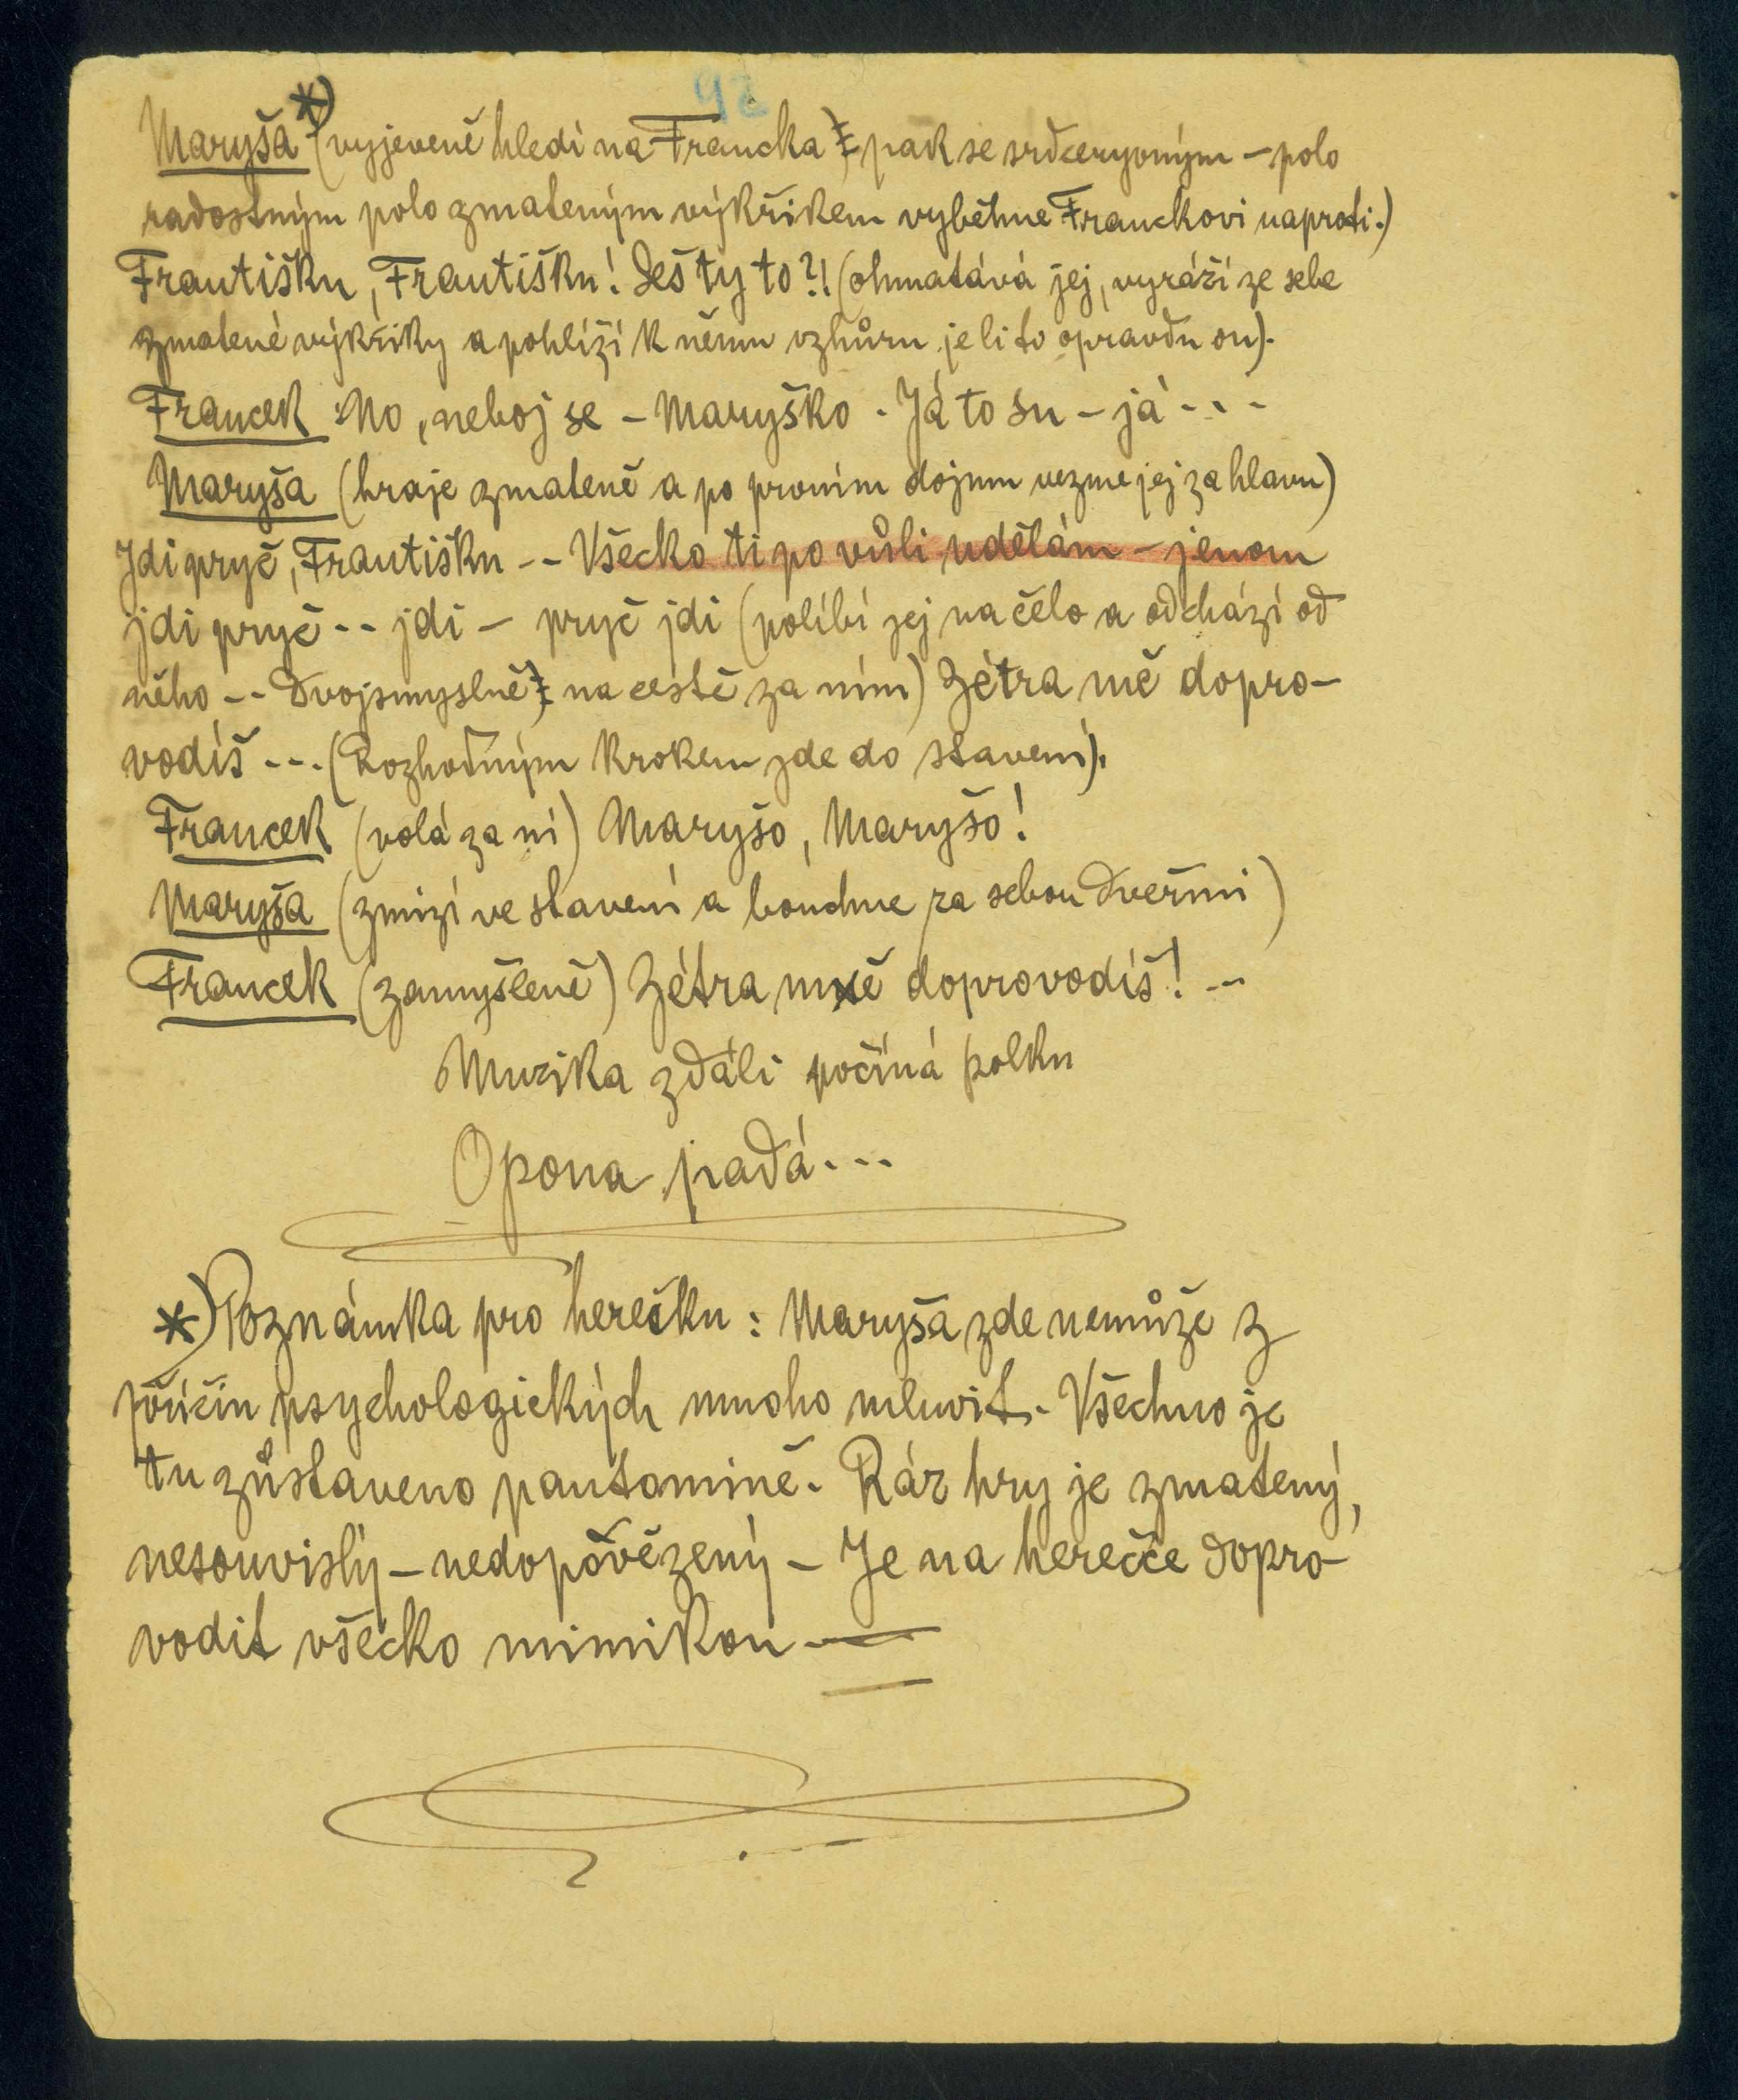 92
Maryša *) (vyjeveně hledí na Francka, pak se srdceryvným – polo
radostným polo zmateným výkřikem vyběhne Franckovi naproti.)
Františku, Františku! Seš ty to?! (ohmatává jej, vyráží ze sebe
zmatené výkřiky a pohlíží k němu vzhůru je li to opravdu on).
Francek No, neboj se – Maryško . Já to su – já - - -
Maryša (hraje zmateně a po prvním dojmu vezme jej za hlavu)
Jdi pryč, Františku -- Všecko ti po vůli udělám – jenom
jdi pryč -- jdi – pryč jdi (políbí jej na čělo a odchází od
něho -- Dvojsmyslně, na cestě za ním) Zétra mě dopro-
vodíš --- (Rozhodným krokem jde do stavení).
Francek (volá za ní) Maryšo, Maryšo!
Maryša (zmizí ve stavení a bouchne za sebou dveřmi)
Francek (zamyšleně) Zétra mě doprovodíš! --
Muzika zdáli počíná polku
Opona padá...
*) Poznámka pro herečku : Maryša zde nemůže z
příčin psychologických mnoho mluvit. Všechno je
tu zůstaveno pantomině. Ráz hry je zmatený,
nesouvislý – nedopověžený – Je na herečce dopro-
vodit všecko mimikou —